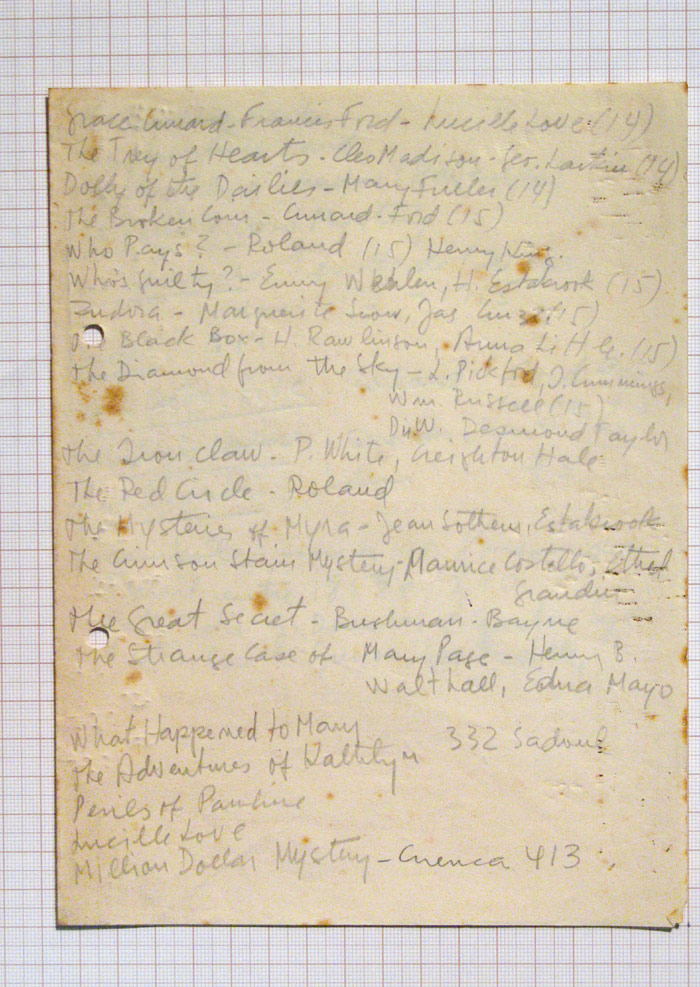 Grace Cunard - Francis Ford - Lucille Love (14)
The Trey of Hearts - Cleo Madison - Geo. Larkin (14)
Dolly of the Dailies - Mary Fuller (14)
The Broken Coin - Cunard - Ford (15)
Who Pays? - Roland (15) Henry King.
Who's Guilty? - Emmy Wehlen, H. Estabrook (15)
Zudora - Marguerite Snow, Jas Cruze (15)
The Black Box - H. Rawlinson, Anna Little. (15)
The Diamond from the Sky - L. Pickford, I. Cummings,
Wm. Russell (15)
Dir W. Desmond Taylor
The Iron Claw - P. White, Creighton Hale
The Red Circle - Roland
The Mysteries of Myra - Jean Sothern, Estabrook
The Crimson Stain Mystery - Maurice Costello, Ethel
Grandin
The Great Secret - Bushman - Bayne
The Strange Case of Mary Page - Henry B.
Walthall, Edna Mayo
What Happened to Mary
332 Sadoul
The Adventures of Kathlyn
Perils of Pauline
Lucille Love
Million Dollar Mystery - Cuenca 413